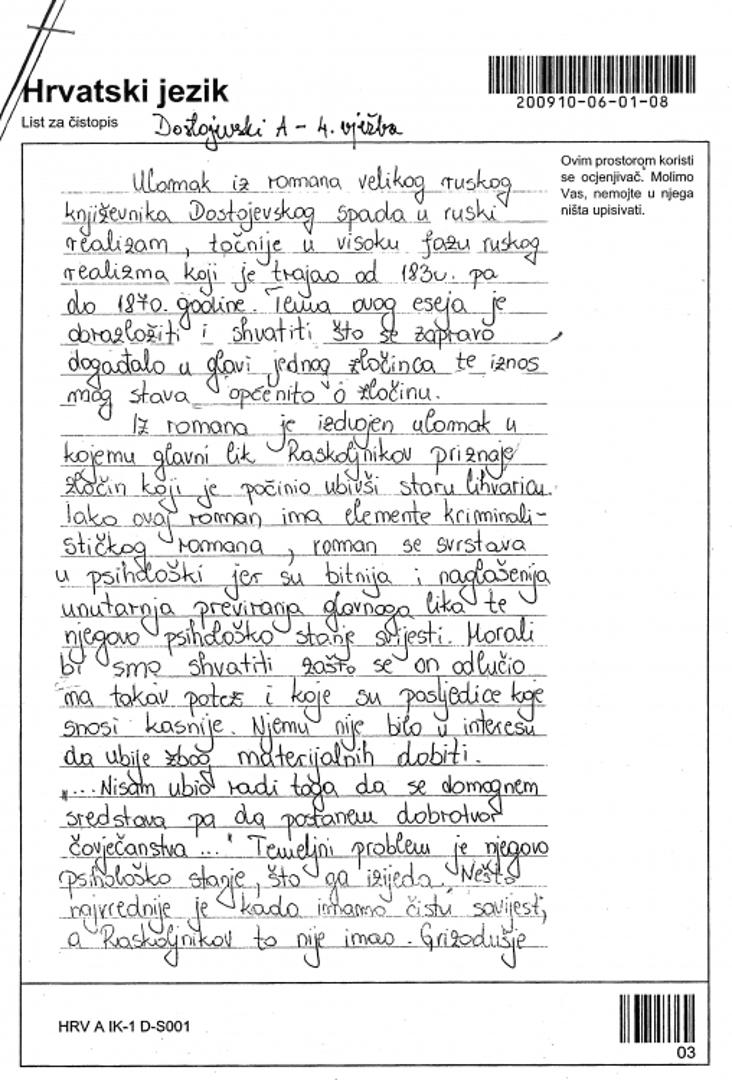 Hrvatski jezik
200910-06-01-08
List za čistopis
Dostojevski A - 4. vježba
Ovim prostorom koristi
se ocjenjivač. Molimo
Vas, nemojte u njega
ništa upisivati.
Ulomak iz romana velikog ruskog
književnika Dostojevskog spada u ruski
realizam, točnije u visoku fazu ruskog
realizma koji je trajao od 1830. pa
do 1870. godine. Tema ovog eseja je
obrazložiti i shvatiti što se zapravo
događalo u glavi jednog zločinca te iznos
mog stava općenito o zločinu.
Iz romana je izdvojen ulomak u
kojemu glavni lik Raskoljnikov priznaje
zločin koji je počinio ubivši staru lihvaricu.
Iako ovaj roman ima elemente kriminali-
stičkog romana, roman se svrstava
u psihološki jer su bitnija i naglašenija
unutarnja previranja glavnoga lika te
njegovo psihološko stanje svijesti. Morali
bi smo shvatiti zašto se on odlučio
na takav potez i koje su posljedice koje
snosi kasnije. Njemu nije bilo u interesu
da ubije zbog materijalnih dobiti.
"... Nisam ubio radi toga da se domognem
sredstava pa da postanem dobrotvor
čovječanstva ..." Temeljni problem je njegovo
psihološko stanje, što ga izijeda. Nešto
najvrednije je kada imamo čistu savijest,
a Raskoljnikov to nije imao. Grizodušje
HRV A IK-1 D-S001
03